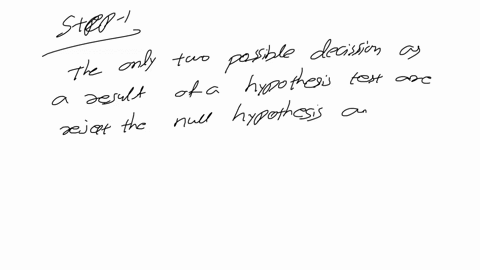 Step-1
The only two possible decission as
a result of a hypothesis test are
reject the null hypothesis or